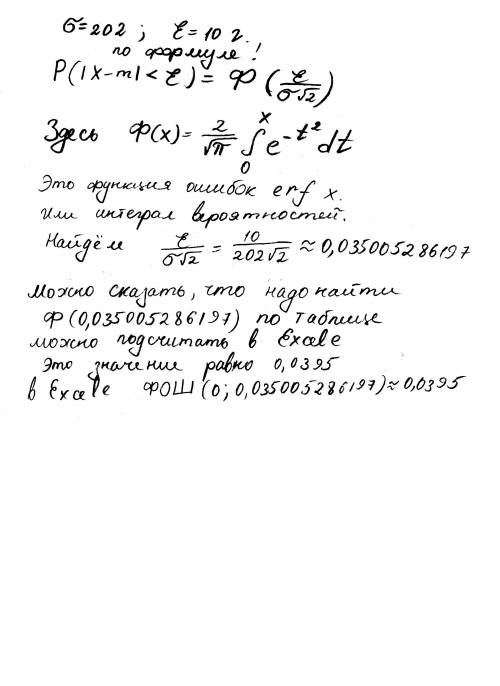 σ=202 ; ε=10 г.
по формуле!
P(|X-m|<ε) = Ф (ε/σ√2)
Здесь Ф(x)= 2/√π ∫₀ˣ e^-t² dt
Это функция ошибок erf x.
Или интеграл вероятностей.
Найдём ε/σ√2 = 10/202√2 ≈ 0,035005286197
Можно сказать, что надо найти
Ф(0,035005286197) по таблице
можно подсчитать в Excele
Это значение равно 0,0395
в Excele ФОШ(0; 0,035005286197)≈0,0395